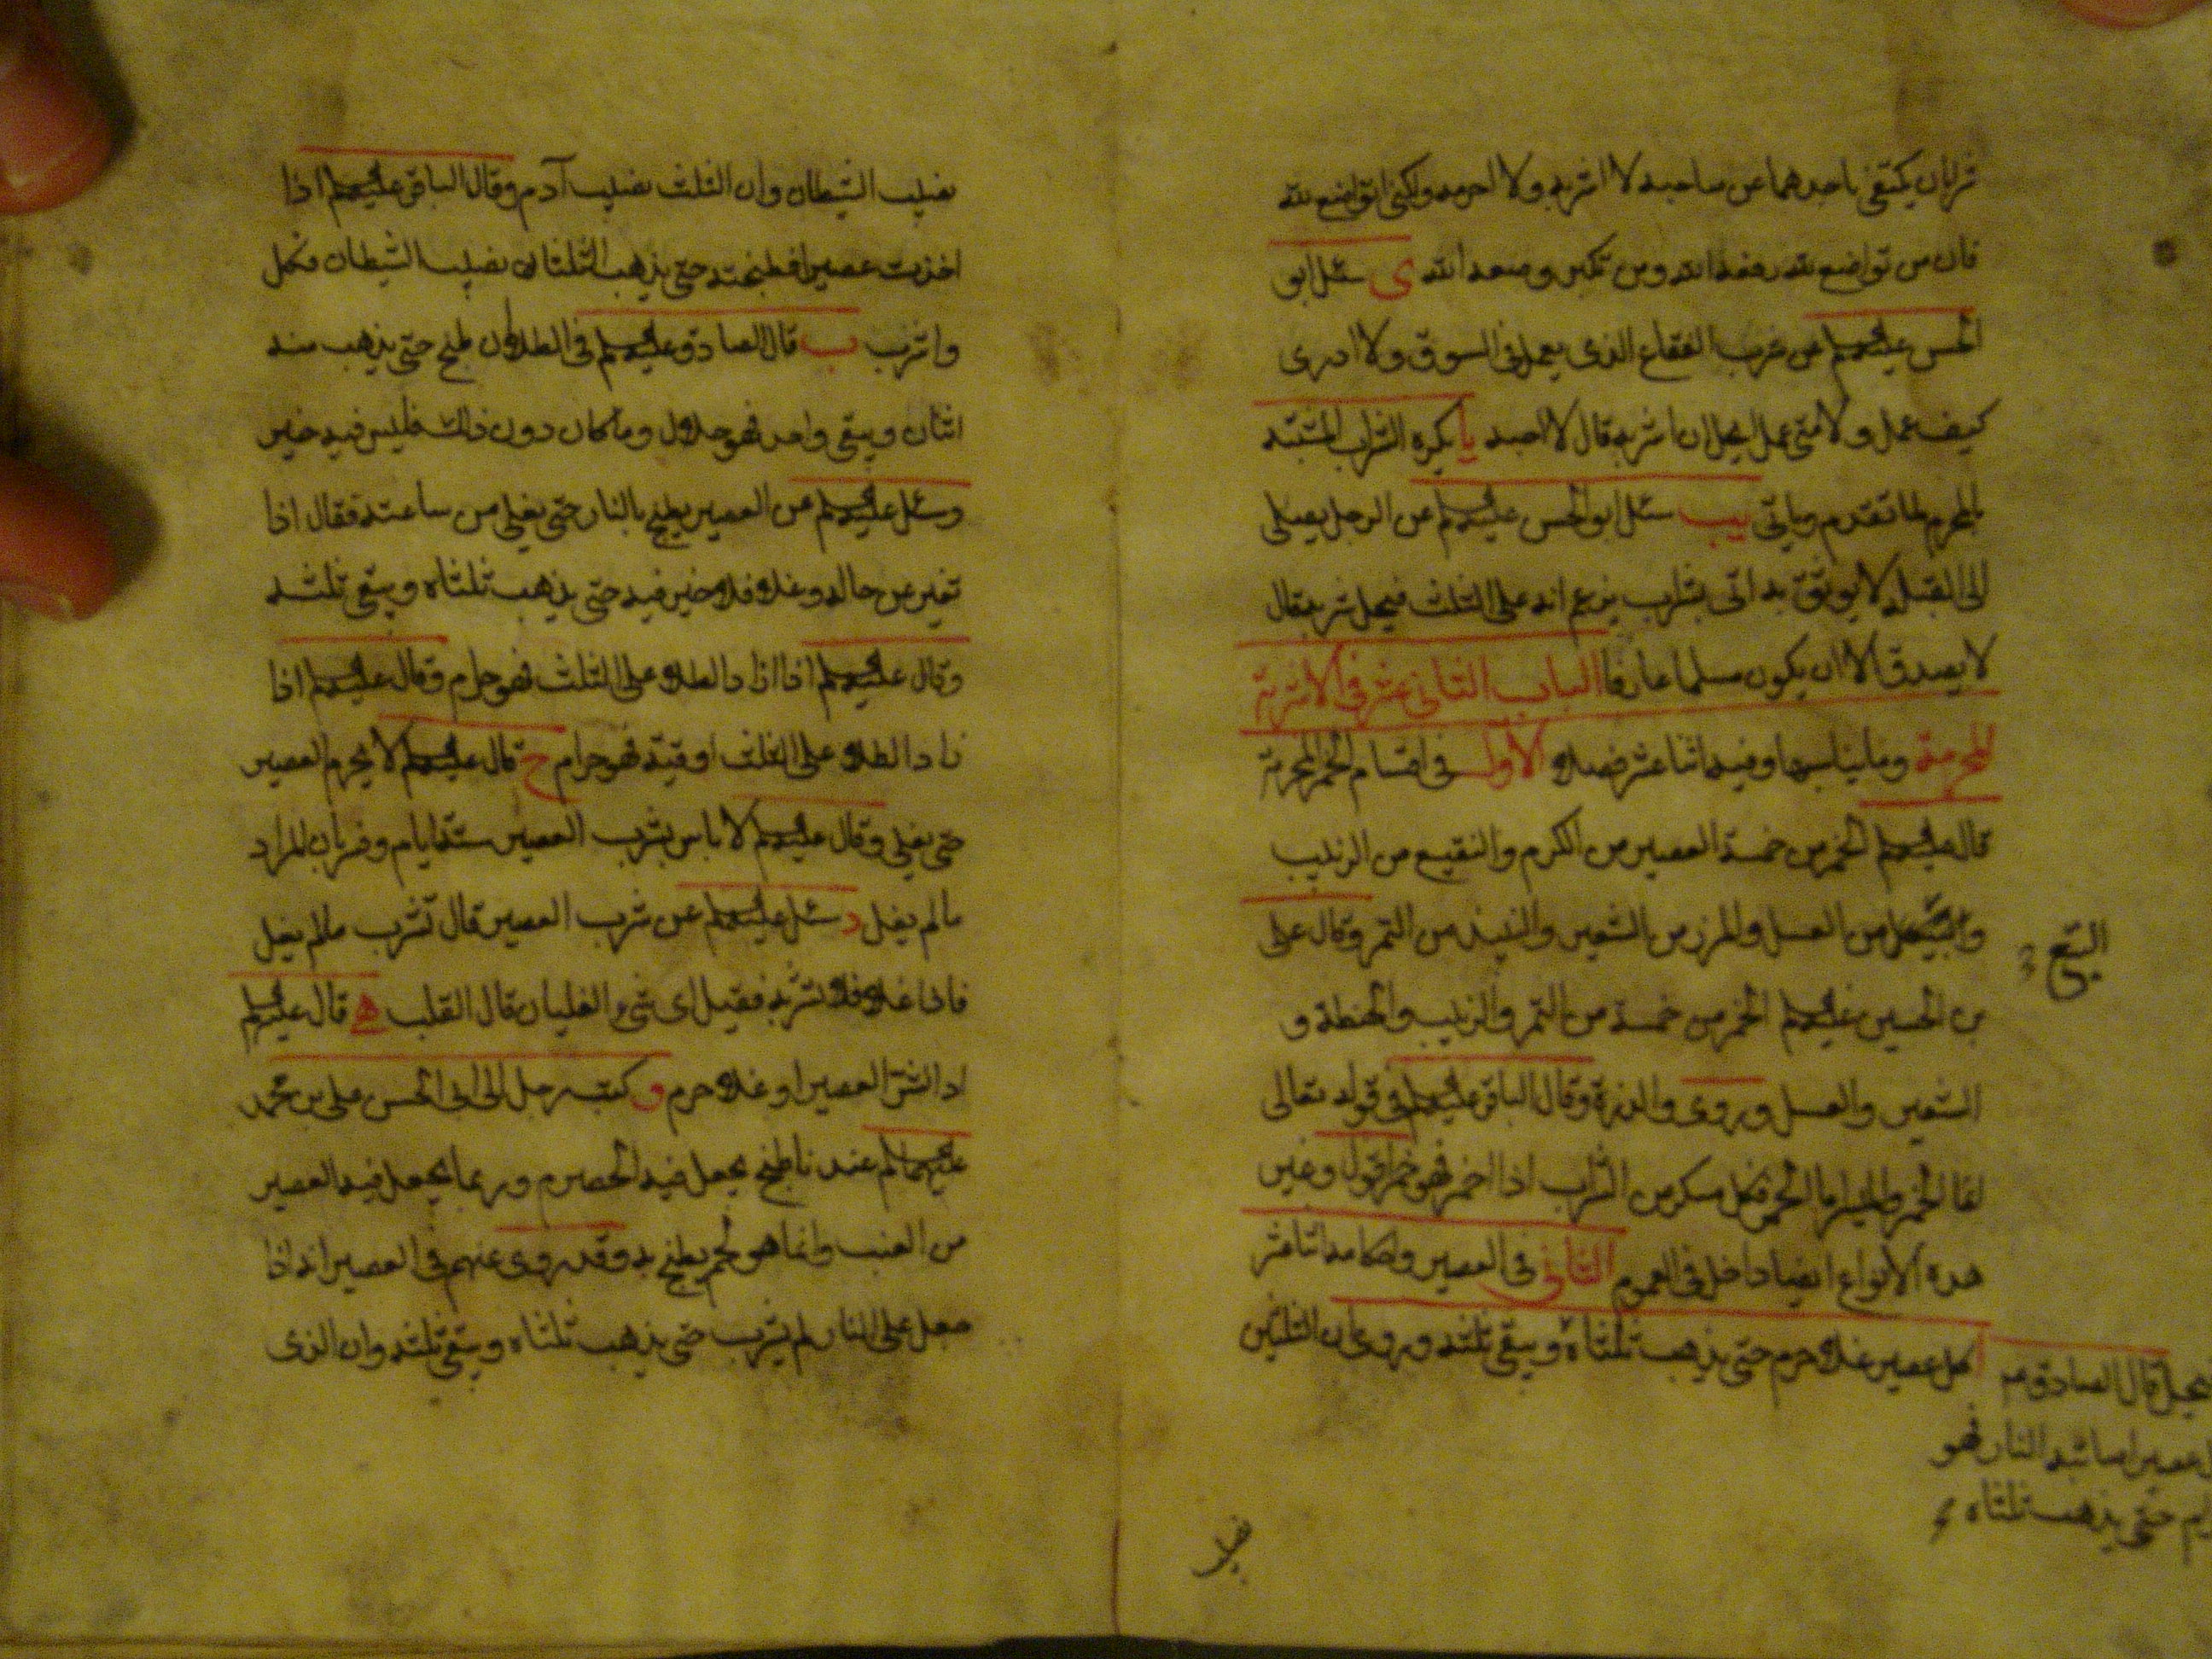 شرابان يكتفى باحدهما عن صاحبه لا اشربه ولا احرمه ولكنى اتواضع لله
فان من تواضع لله رفعه الله ومن تكبر وضعه الله ى سئل ابو
الحسن عليه السلم عن شرب الفقاع الذى يعمل فى السوق ولا ادرى
كيف عمل ولا متى عمل ايحل ان اشربه قال لا احبه يا يكره الشراب المشتبه
بالمحرم لما تقدم وياتى يب سئل ابو الحسن عليه السلم عن الرجل يصلى
الى القبلة لا يوثق به اتى بشراب يزعم انه على الثلث فيحل شربه قال
لا يصدق الا ان يكون مسلما عارفا الباب الثانى عشر فى الاشربة
المحرمة وما يناسبها وفيه اثنا عشر فصلا الاول فى اقسام الخمر المحرمة
قال عليه السلم الخمر من خمسة العصير من الكرم والنقيع من الزبيب
والبتع من العسل والمزر من الشعير والنبيذ من التمر وقال على
البتع
بن الحسين عليه السلم الخمر من خمسة من التمر والزبيب والحنطة و
الشعير والعسل وروى والذرة وقال الباقر عليه السلم فى قوله تعالى
انما الخمر والميسر اما الخمر فكل مسكر من الشراب اذا اخمر فهو خمر اقول وغير
هذه الانواع ايضا داخل فى العموم الثانى فى العصير واحكامه اثنا عشر
ا كل عصير غلا حرم حتى يذهب ثلثاه ويبقى ثلثه وروى ان الثلثين
قال الصادق
عصير اصابته النار فهو
حتى يذهب ثلثاه
نصيب الشيطان وان الثلث نصيب آدم وقال الباقر عليه السلم اذا
اخذت عصيرا فطبخته حتى يذهب الثلثان نصيب الشيطان فكل
واشرب ب قال الصادق عليه السلم فى الطلا ان طبخ حتى يذهب منه
اثنان ويبقى واحد فهو حلال وما كان دون ذلك فليس فيه خير
وسئل عليه السلم عن العصير يطبخ بالنار حتى يغلى من ساعته فقال اذا
تغير عن حاله وغلا فلا خير فيه حتى يذهب ثلثاه ويبقى ثلثه
وقال عليه السلم اذا ازاد الطلا على الثلث فهو حرام وقال عليه السلم اذا
زاد الطلا على الثلث اوقية فهو حرام ج قال عليه السلم لا يحرم العصير
حتى يغلى وقال عليه السلم لا باس بشرب العصير ستة ايام وفسر بان المراد
ما لم يغل د سئل عليه السلم عن شرب العصير قال تشرب ما لم يغل
فاذا غلا فلا تشربه فقيل اى شىء الغليان قال القلب ه قال عليه السلم
اذا نش العصير او غلا حرم و كتب رجل الى ابى الحسن على بن محمد
عليهما السلم عندنا طبخ يجعل فيه الحصرم وربما يجعل فيه العصير
من العنب وانما هو لحم يطبخ به وقد روى عنهم فى العصير انه اذا
جعل على النار لم يشرب حتى يذهب ثلثاه ويبقى ثلثه وان الذى